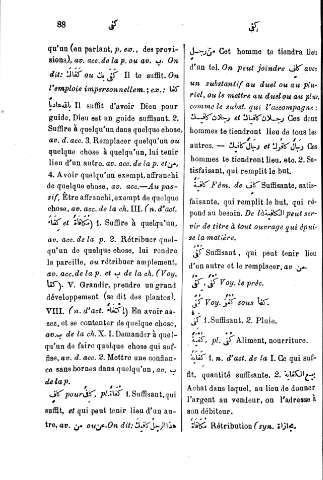 88
كفى
كفى
qu'un (en parlant, p. ex., des provi-
sions), av. acc. de la p. ou av. ب. On
dit: كفاك ou كفى بك Il te suffit. On
l'emploie impersonnellem.; ex. كفا
بالله هاديًا Il suffit d'avoir Dieu pour
guide, Dieu est un guide suffisant. 2.
Suffire à quelqu'un dans quelque chose,
av. d. acc. 3. Remplacer qu'un ou qu
quelque chose à quelqu'un, lui tenir
lieu d'un autre. av. acc. de la p. et من.
4. Avoir quelqu'un exempt, affranchi
de quelque chose, av. acc. — Au pas-
sif, Être affranchi, exempt de quelque
chose, av. acc. de la ch. III. (n. d'act.
مكافاة et كفاء) 1. Suffire à quelqu'un,
av. acc. de la p. 2. Rétribuer quel-
qu'un de quelque chose, lui rendre
la pareille, ou rétribuer amplement,
av. acc. de la p. et ب de la ch. (Voy.
كفأ). V. Grandir, prendre un grand
développement (se dit des plantes).
VIII. (n. d'act. اكتفاء) En avoir as-
sez, et se contenter de quelque chose,
av. ب de la ch. X. 1. Demander à quel-
qu'un de faire quelque chose qui suf-
fise, av. d. acc. 2. Mettre une confian-
ce sans bornes dans quelqu'un, av. ب
de la p.
كفى pour كاف, pl. 1. Suffisant, qui
suffit, et qui peut tenir lieu d'un au-
tre, av. من ou عن. On dit: هذا الرجل كافيك
من رجل Cet homme te tiendra lieu
d'un tel. On peut joindre كافى avec
un substantif au duel ou au plu-
riel, ou le mettre au duel ou au plur.,
comme le subst. qui l'accompagne:
رجلان كافيك et رجلان كافياك Ces deux
hommes te tiendront lieu de tous ces
رجال كافيك et رجال كافوك — Ces
hommes te tiendront lieu, etc. 2. Sa-
tisfaisant, qui remplit le but.
كافية Fém. de كاف Suffisante, satis-
faisante, qui remplit le but, qui ré-
pond au besoin. De là الكافية peut ser-
vir de titre à tout ouvrage qui épui-
se la matière.
كفى Suffisant, qui peut tenir lieu
d'un autre et le remplacer, av. من.
كفى Voy. le préc.
كفى Voy. sous كفأ.
كفى 1. Suffisant. 2. Pluie.
كفية, pl. كفى Aliment, nourriture.
كفاية 1. n. d'act. de la I. Ce qui suf-
fit, quantité suffisante. 2. بيع الكفاية
Achat dans lequel, au lieu de donner
l'argent au vendeur, on l'adresse à
son débiteur.
مكافاة Rétribution (syn. مجازاة).